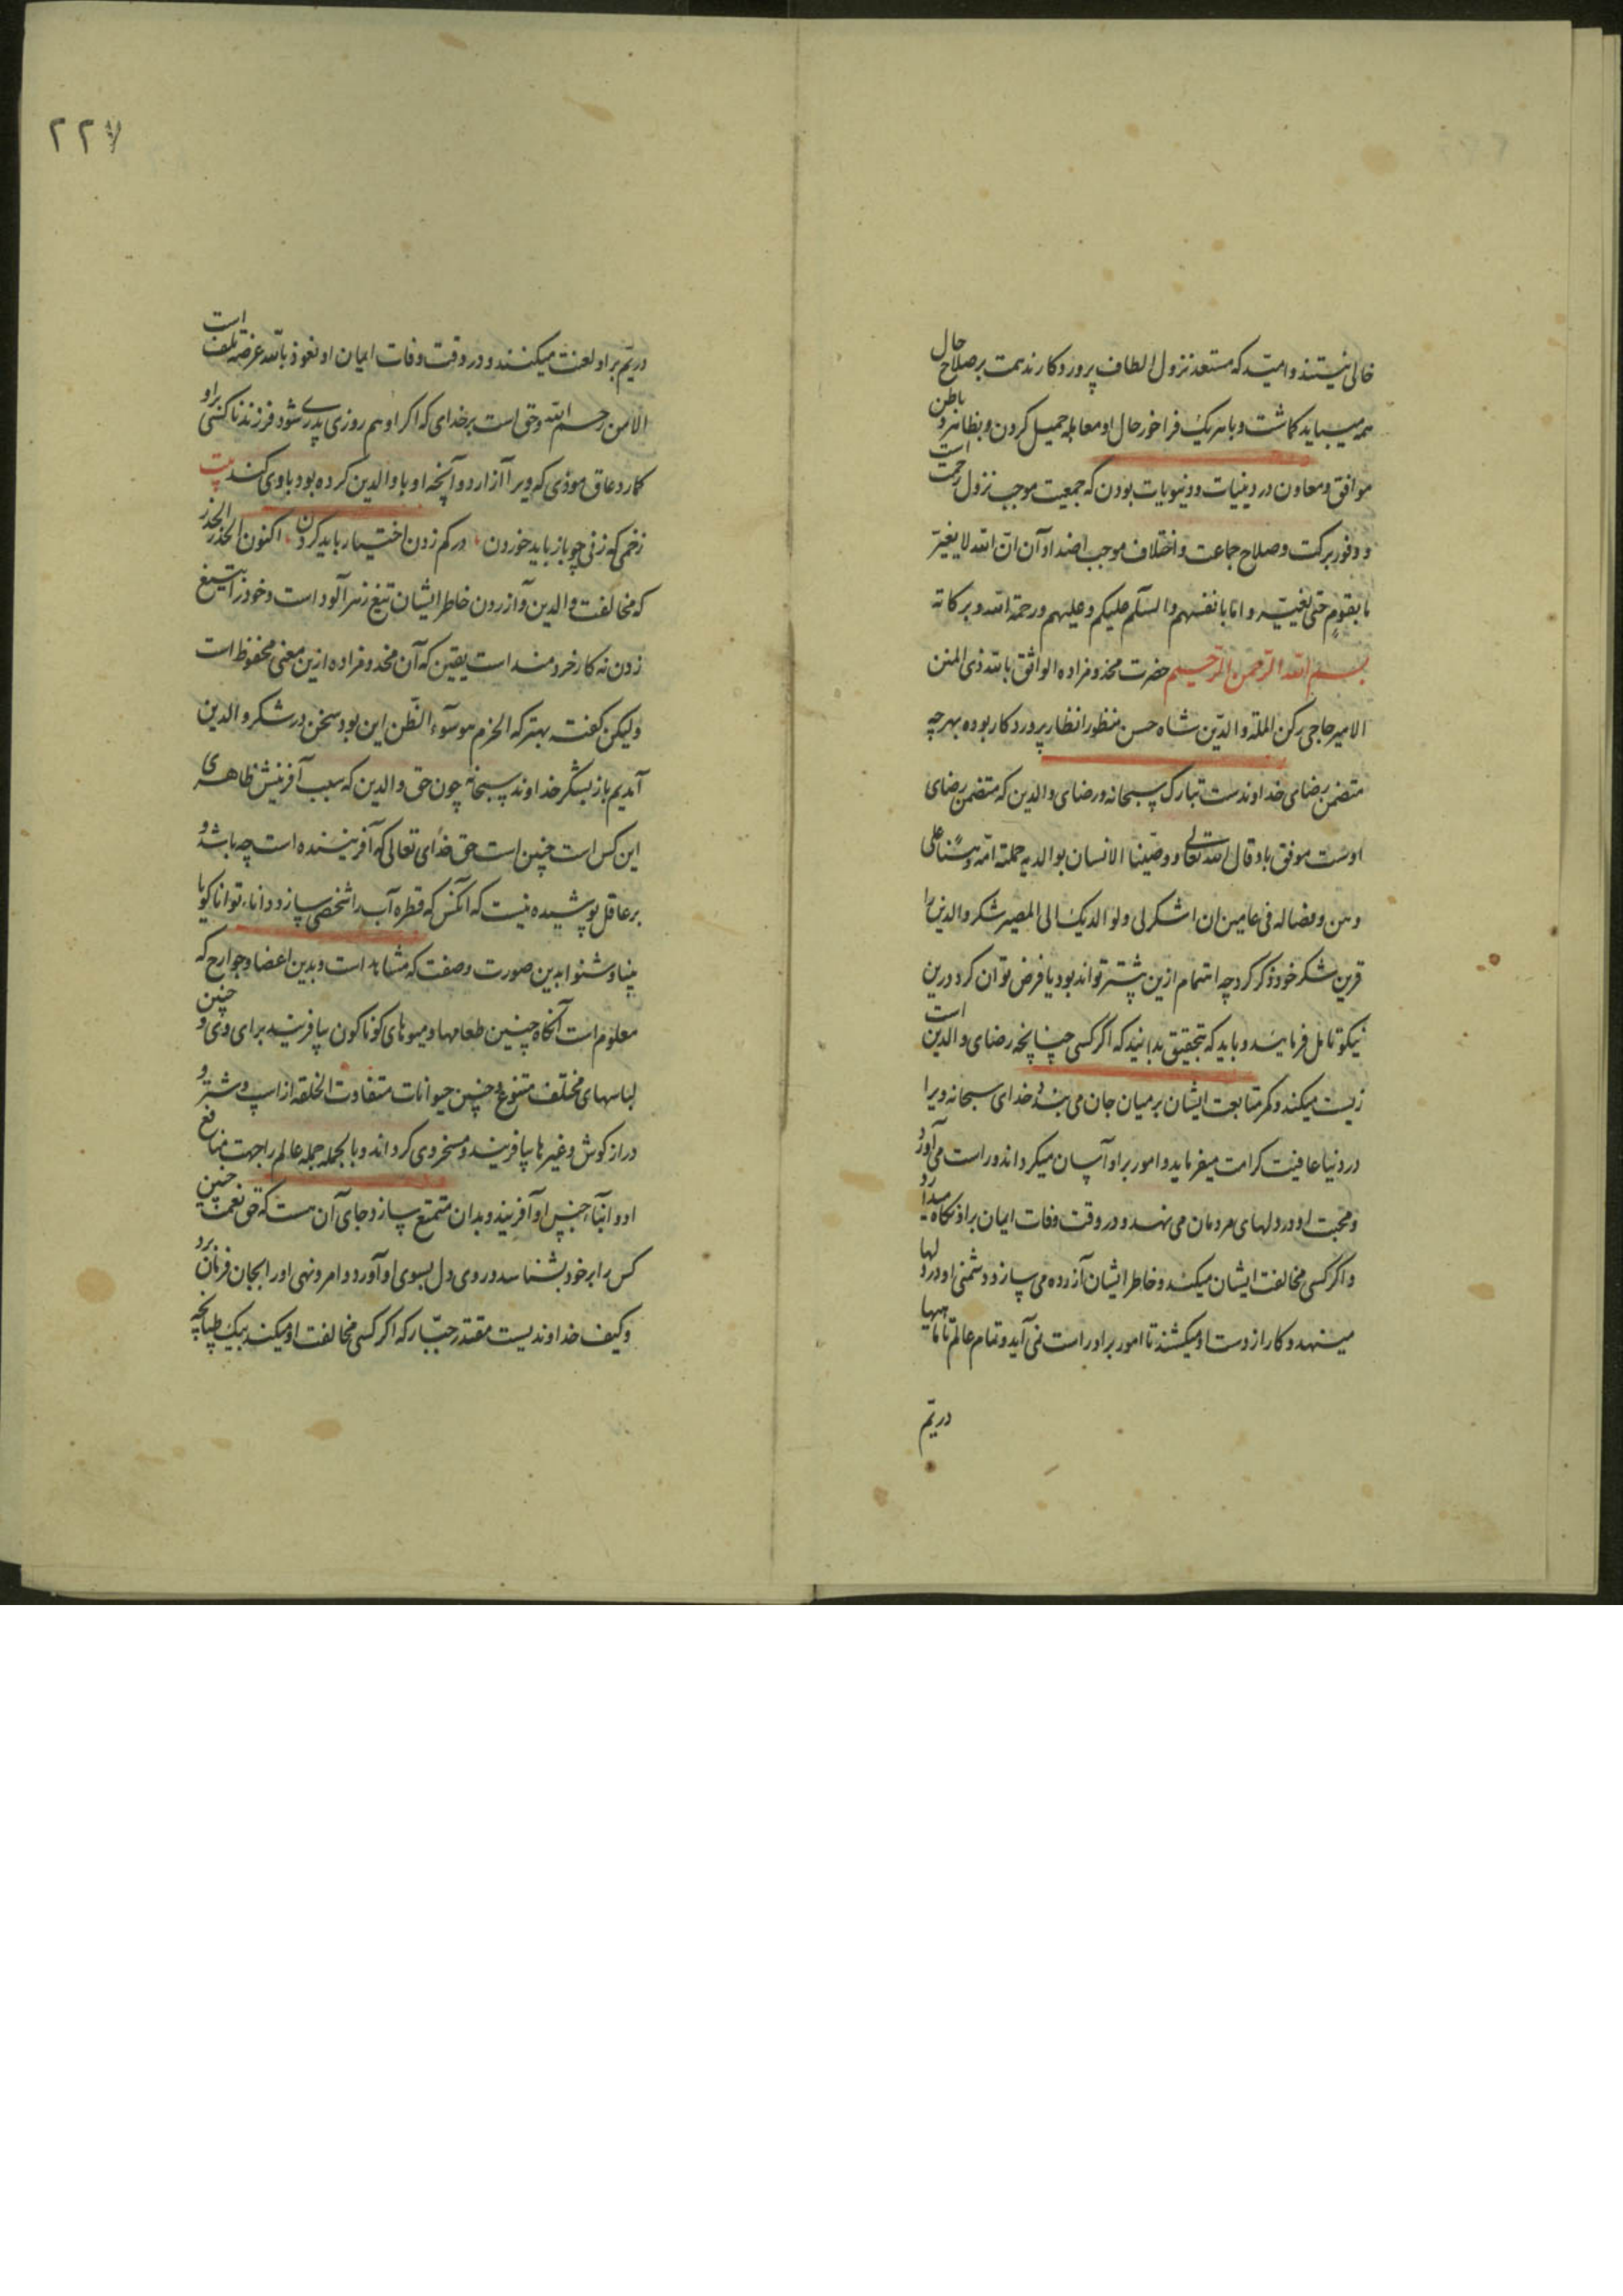 خالی نیستند و امید که مستعد نزول الطاف پروردکارند همت بر صلاح حال
همه میباید کماشت و با هر یک فراخور حال او معامله جمیل کردن و بظاهر و باطن
موافق و معاون در دینیات و دنیویات بودن که جمعیت موجب نزول رحمت است
و وفور برکت و صلاح جماعت و اختلاف موجب اضداد آن ان الله لا یغیر
ما بقوم حتی یغیروا ما بانفسهم والسلم علیکم وعلیهم ورحمة الله وبرکاته
بسم الله الرحمن الرحیم حضرت مخدومزاده الواثق بالله ذی المنن
الامیر حاجی رکن الملة والدین شاه حسن منظور انظار پروردکار بوده بهرچه
متضمن رضای خداوندست تبارک سبحانه و رضای والدین که متضمن رضای
اوست موفق باد قال الله تعالی ووصینا الانسان بوالدیه حملته امه وهنا علی
وهن وفصاله فی عامین ان اشکر لی ولوالدیک الی المصیر شکر والدین را
قرین شکر خود ذکر کرد چه اهتمام ازین بیشتر تواند بود یا فرض توان کرد درین
نیکو تامل فرمایند و باید که بتحقیق بدانید که اگر کسی چنانچه رضای والدین است
زیست میکند و کمر متابعت ایشان بر میان جان می بندد خدای سبحانه ویرا
در دنیا عافیت کرامت میفرماید و امور بر او آسان میکرداند و راست می آورد
و محبت او در دلهای مردمان می نهد و در وقت وفات ایمان بر او نکاه میدارد
و اگر کسی مخالفت ایشان میکند و خاطر ایشان آزرده می سازد دشمنی او در دلها
مینهد و کار از دست او میکشند تا امور بر او راست نمی آید و تمام عالم تا ماهیها
دریم
۲۲۷
دریم بر او لعنت میکنند و در وقت وفات ایمان او نعوذ بالله عرضه تلف است
الا من رحم الله و حق است بر خدای که اکر او هم روزی پدری شود فرزند ناکسی بر او
کمارد عاق موذی که ویرا آزارد و آنچه او با والدین کرده بود با وی کند بیت
زخمی که زنی چو باز باید خوردن در کم زدن اختیار باید کردن اکنون الحذر الحذر
که مخالفت والدین و آزردن خاطر ایشان تیغ زهرآلود است و خود را تیغ
زدن نه کار خردمند است یقین که آن مخدومزاده ازین معنی محفوظ است
ولیکن کفته بهتر که الحزم هو سوء الظن این بود سخن در شکر والدین
آمدیم باز بشکر خداوند سبحانه چون حق والدین که سبب آفرینش ظاهری
این کس است چنین است حق خدای تعالی که آفریننده است چه باشد و
بر عاقل پوشیده نیست که آنکس که قطره آب را شخصی سازد دانا و توانا کویا
بینا و شنوا بدین صورت و صفت که مشاهد است و بدین اعضا و جوارح که
معلوم است آنکاه چنین طعامها و میوهای کوناکون بیافریند برای وی و چنین
لباسهای مختلف متنوع و چنین حیوانات متفاوت الخلقه از اسپ و شتر و
درازکوش و غیرها بیافریند و مسخر وی کرداند و بالجمله جمله عالم را جهت منافع
او و ابناء جنس او آفریند و بدان متمتع سازد جای آن هست که حق نعمت چنین
کس را بر خود بشناسد و روی دل بسوی او آورد و امر و نهی او را بجان فرمان برد
وکیف خداوندیست مقتدر جبار که اکر کسی مخالفت او میکند بیک طپانچه